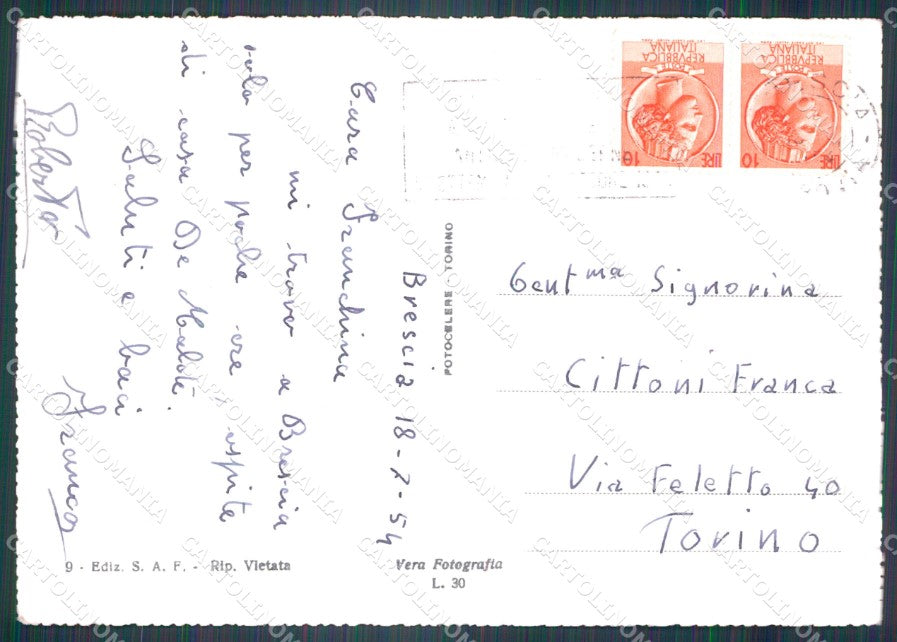 Brescia 18-7-54
Cara Franchina
mi trovo a Brescia
solo per poche ore ospite
di casa De
Saluti e baci
Franco
Roberto
Gentma Signorina
Cittoni Franca
Via Feletto 40
Torino
REPVBBLICA
ITALIANA
POSTE
LIRE 10
REPVBBLICA
ITALIANA
POSTE
LIRE 10
FOTOCELERE TORINO
9 - Ediz. S. A. F. - Rip. Vietata
Vera Fotografia
L. 30
CARTOLINOMANIA